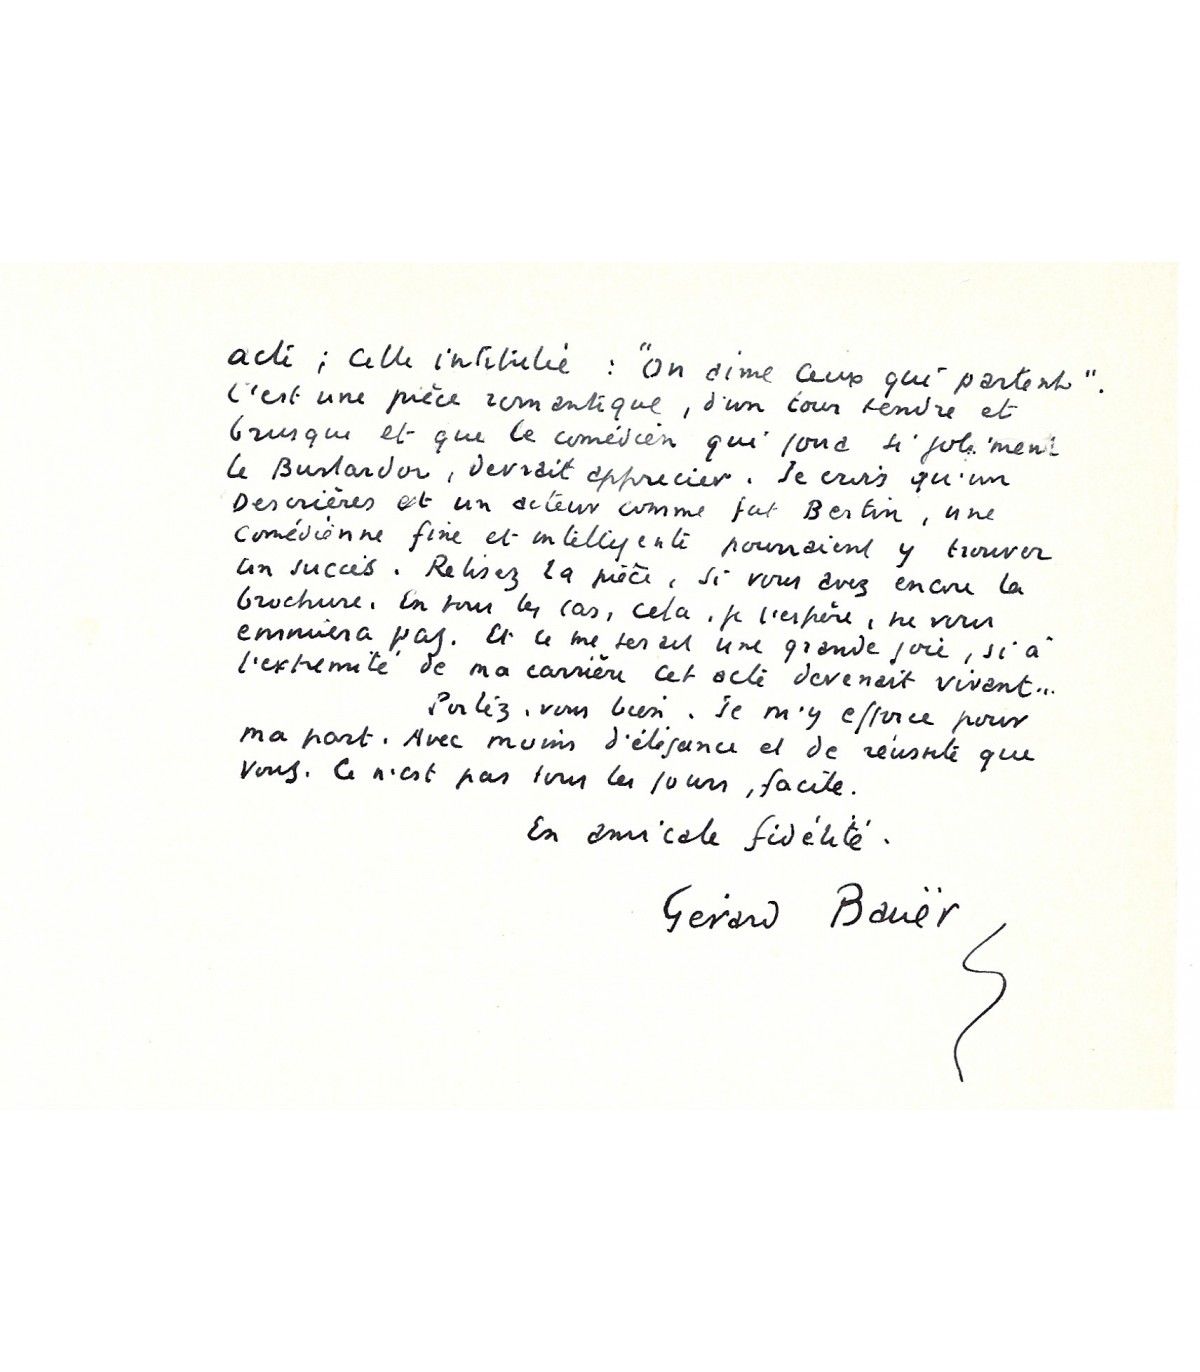 acte ; celle intitulée : "On aime ceux qui partent".
C'est une pièce romantique, d'un tour tendre et
brusque et que le comédien qui joua si joliment
le Burlador, devrait apprecier. Je crois qu'un
Descrières et un acteur comme fut Bertin, une
comédienne fine et intelligente pourraient y trouver
un succès. Relisez la pièce, si vous avez encore la
brochure. En tous les cas, cela, je l'espère, ne vous
ennuiera pas. Et ce me serait une grande joie, si à
l'extrémité de ma carrière cet acte devenait vivant...
Portez-vous bien. Je m'y efforce pour
ma part. Avec moins d'élégance et de réussite que
vous. Ce n'est pas tous les jours, facile.
En amicale fidélité.
Gérard Bauër